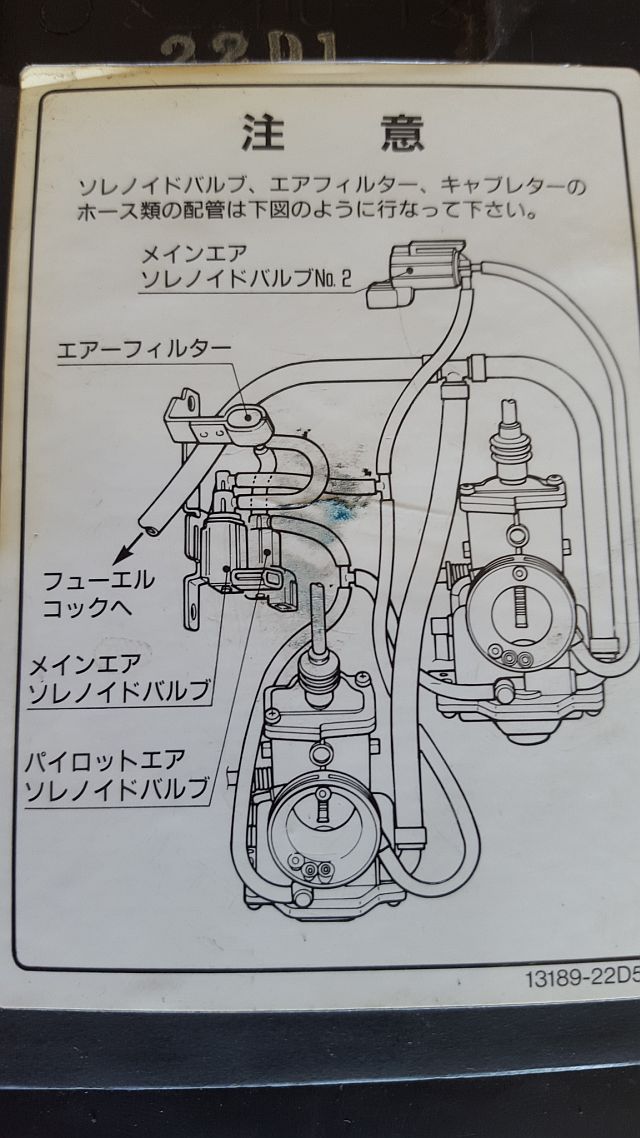 22D1
注意
ソレノイドバルブ、エアフィルター、キャブレターの
ホース類の配管は下図のように行なって下さい。
メインエア
ソレノイドバルブNo. 2
エアーフィルター
フューエル
コックへ
メインエア
ソレノイドバルブ
パイロットエア
ソレノイドバルブ
13189-22D5